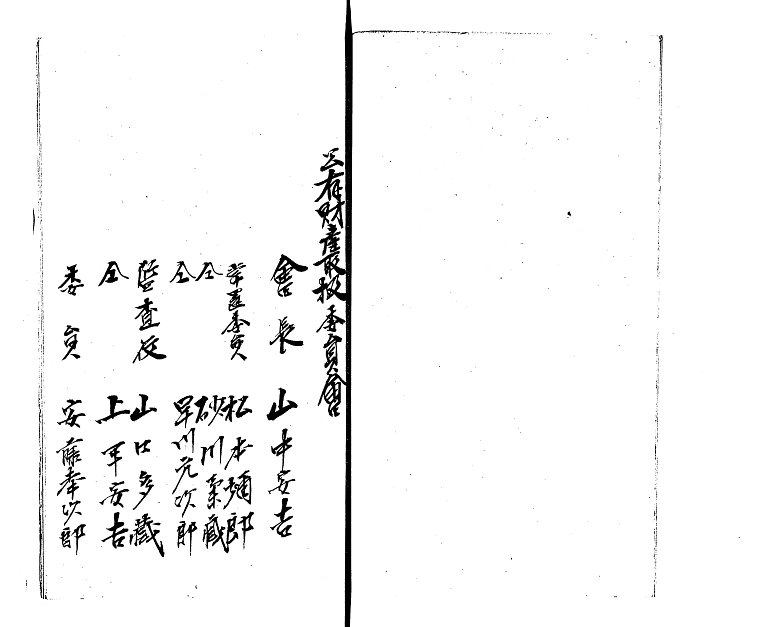 公有財産取扱委員會
會長 山中安吉
常置委員 松本彌郎
仝 砂川崇蔵
仝 早川元次郎
監査役 山口多蔵
仝 上平安吉
委員 安藤奉次郎